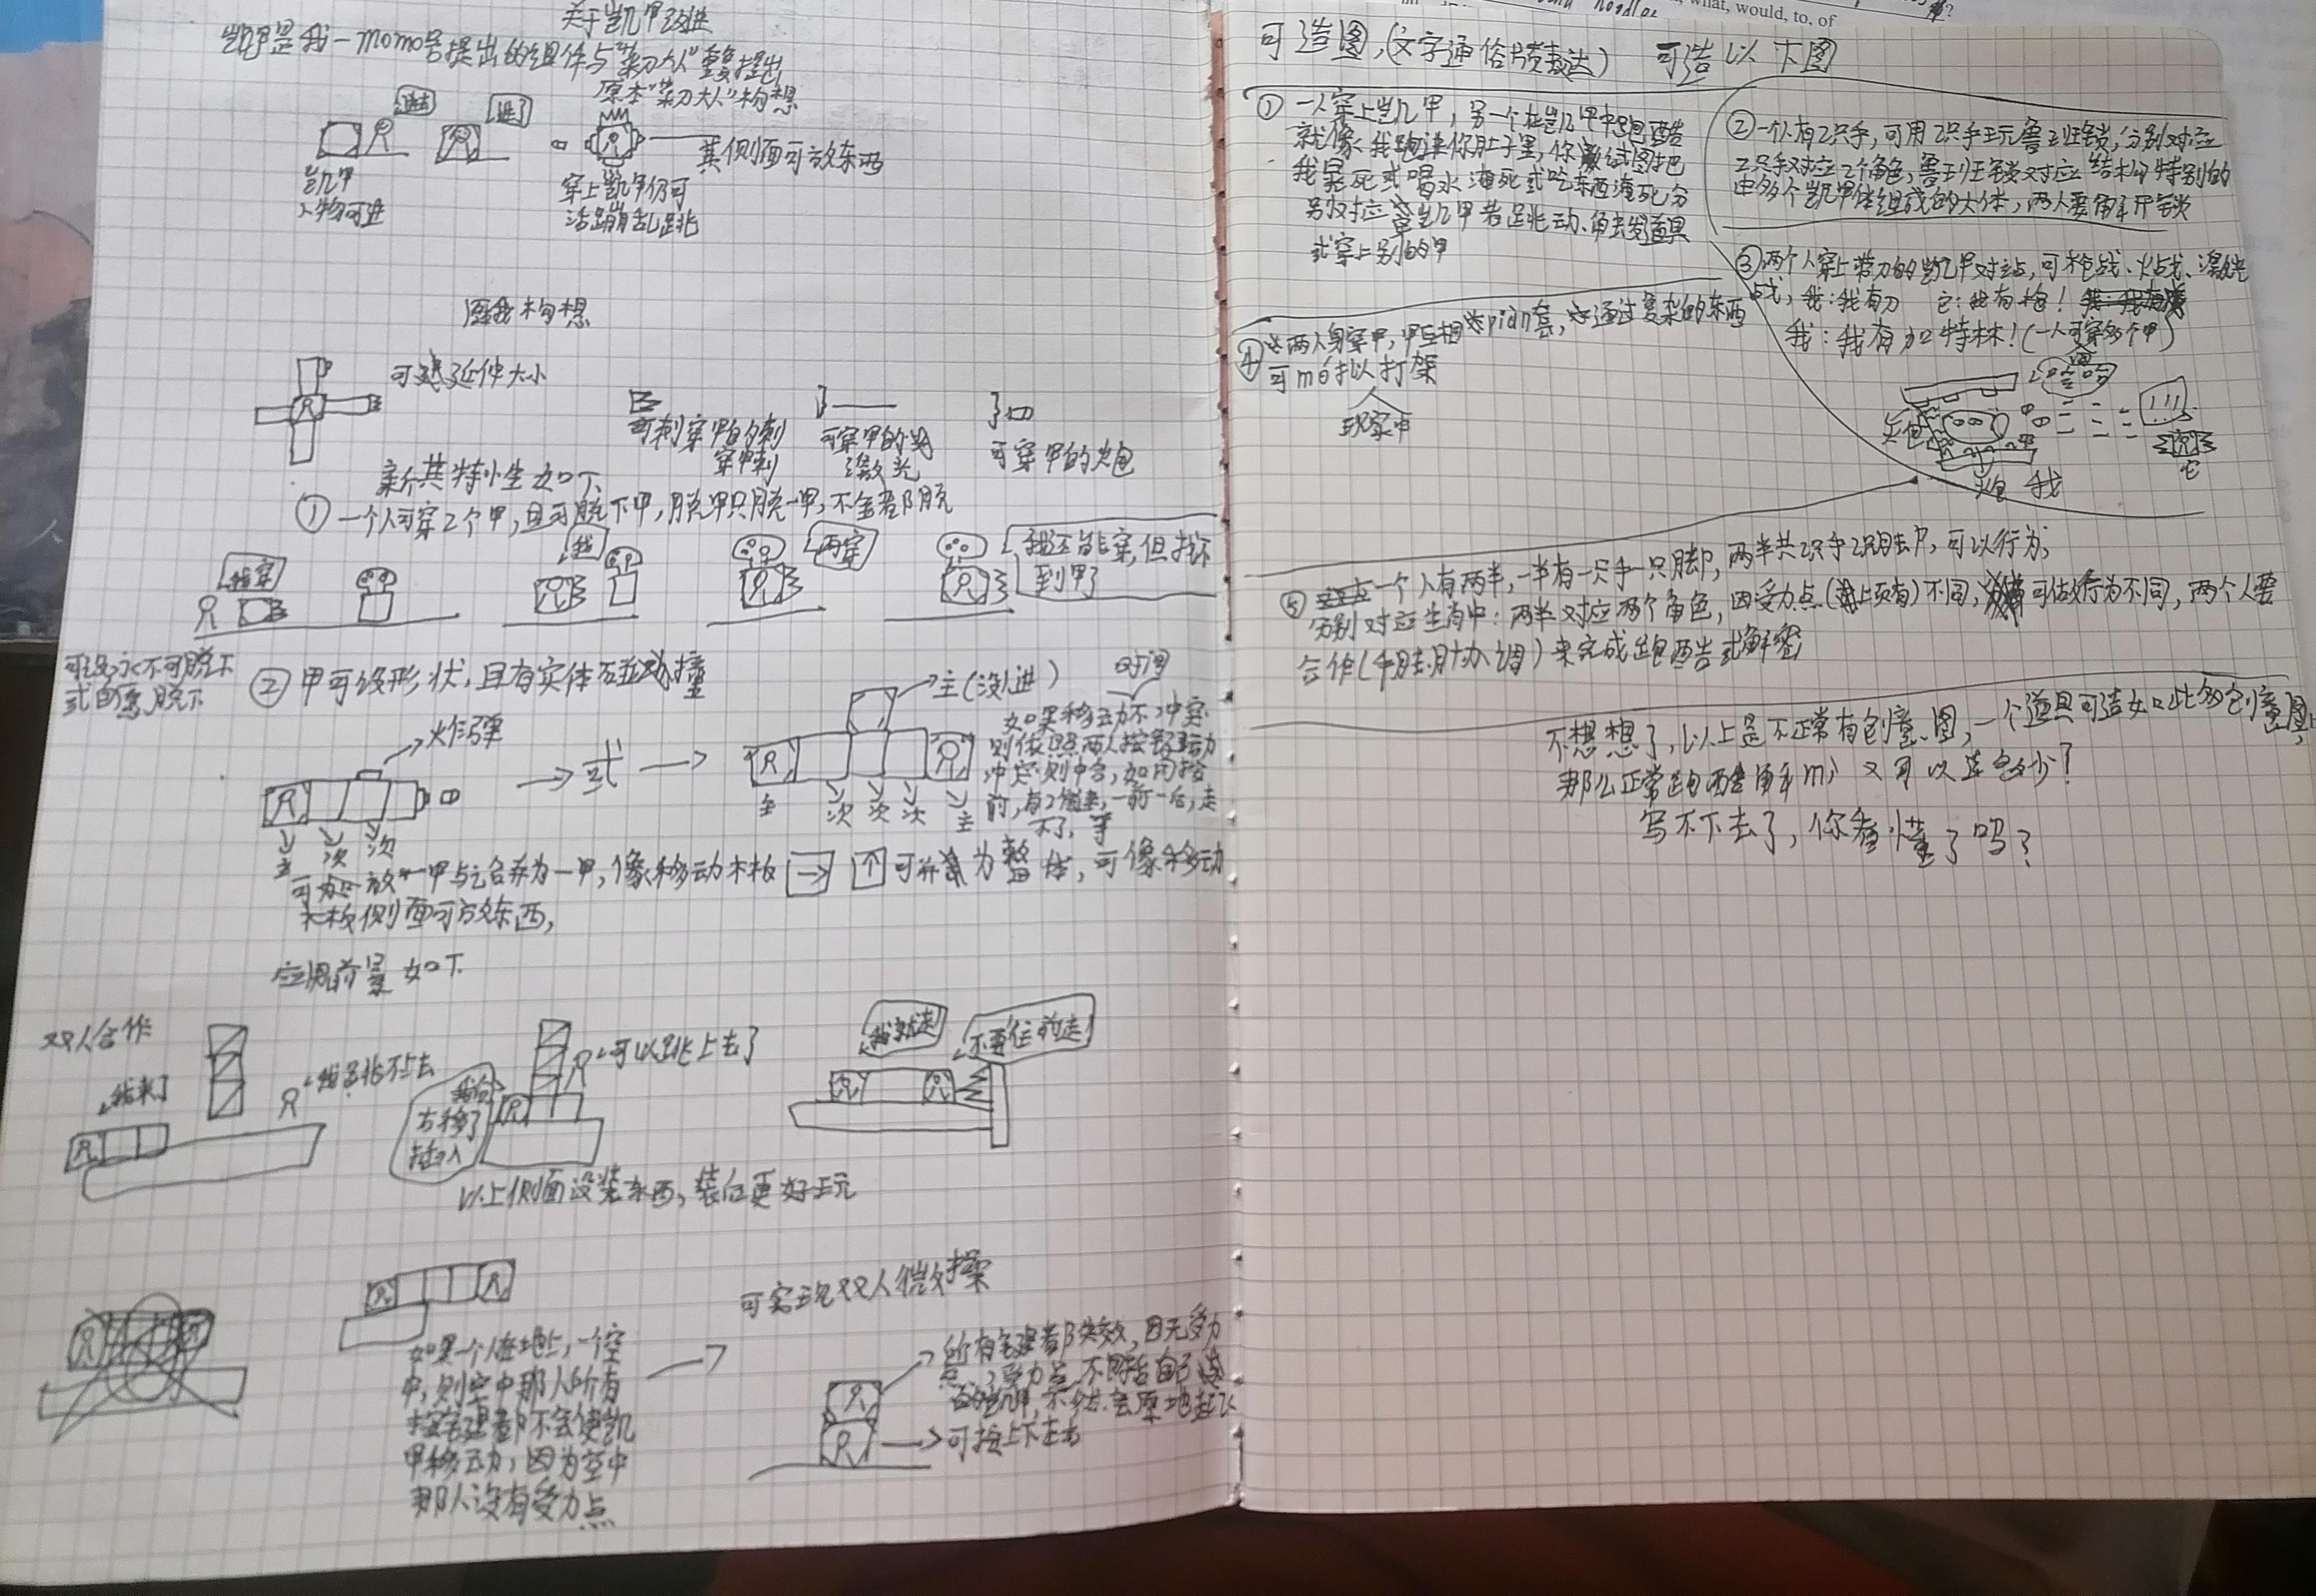 关于凯甲改进
凯甲是我一momo号提出的组件与"菜刀大人"重复提出
原本"菜刀大人"构想
进去
进了
其侧面可放东西
凯甲
人物可进
穿上凯甲仍可
活蹦乱跳
我构想
可延伸大小
可刺穿甲的刺
穿甲刺
可穿甲的
激光
可穿甲的火包
新共特小生如下
① 一个人可穿2个甲,且可脱下甲,脱甲只脱一甲,不全都脱
我穿
我
再穿
我还能穿,但找不
到甲了
可设永不可脱下
式自愿脱下
② 甲可设形状,且有实体碰撞
炸弹
主(没人进)
时间
如果移动不冲突
则依照两人按键移动
冲突则中合,如同按
前,有2键,一前一后,走
不了,等
→式→
主
次
次
主
次
次
次
主
可放一甲与之合并为一甲,像移动木板 → ↑ 可并为整体,可像移动
木板侧面可放东西,
应用前景如下
双人合作
我来了
我跳不上去
我向
方移了
插入
可以跳上去了
我就走
不要往前走!
以上侧面没装东西,装后更好玩
可实现双人微操
如果一个人在地上,一个空
中,则空中那人所有
按键都不会使凯
甲移动,因为空中
那人没有受力点
所有键都失效,因无受力
点,受力点不包括自己
的凯甲,不然会原地起飞
可按上下左右
what, would, to, of
可造图,(文字通俗版表达) 可造以下图
① 一人穿上凯甲,另一个在凯甲中跑酷
就像我跑进你肚子里,你试图把
我晃死或喝水淹死或吃东西淹死分
别对应穿凯甲者跳动、触发道具
式穿上别的甲
② 一个人有2只手,可用2只手玩鲁班锁,分别对应
2只手对应2个角色,鲁班锁对应结构特别的
由多个凯甲体组成的大体,两人要解开锁
③ 两个人穿上带刀的凯甲对战,可枪战、火战、激光
战,我:我有刀 它:我有枪!
我:我有加特林!(一人可穿多个甲)
哈
火包 我
它
④ 两人身穿甲,甲互相pian套,通过复杂的东西
可mó拟打架
现实中
⑤ 一个人有两半,一半有一只手一只脚,两半共2只手2只脚,可以行为,
分别对应生肖中:两半对应两个角色,因受力点(上页有)不同,可做行为不同,两个人要
合作(手脚协调)来完成跑酷或解密
不想想了,以上是不正常有创意图,一个道具可造如此多创意图,
那么正常跑酷解mi又可以造多少?
写不下去了,你看懂了吗?